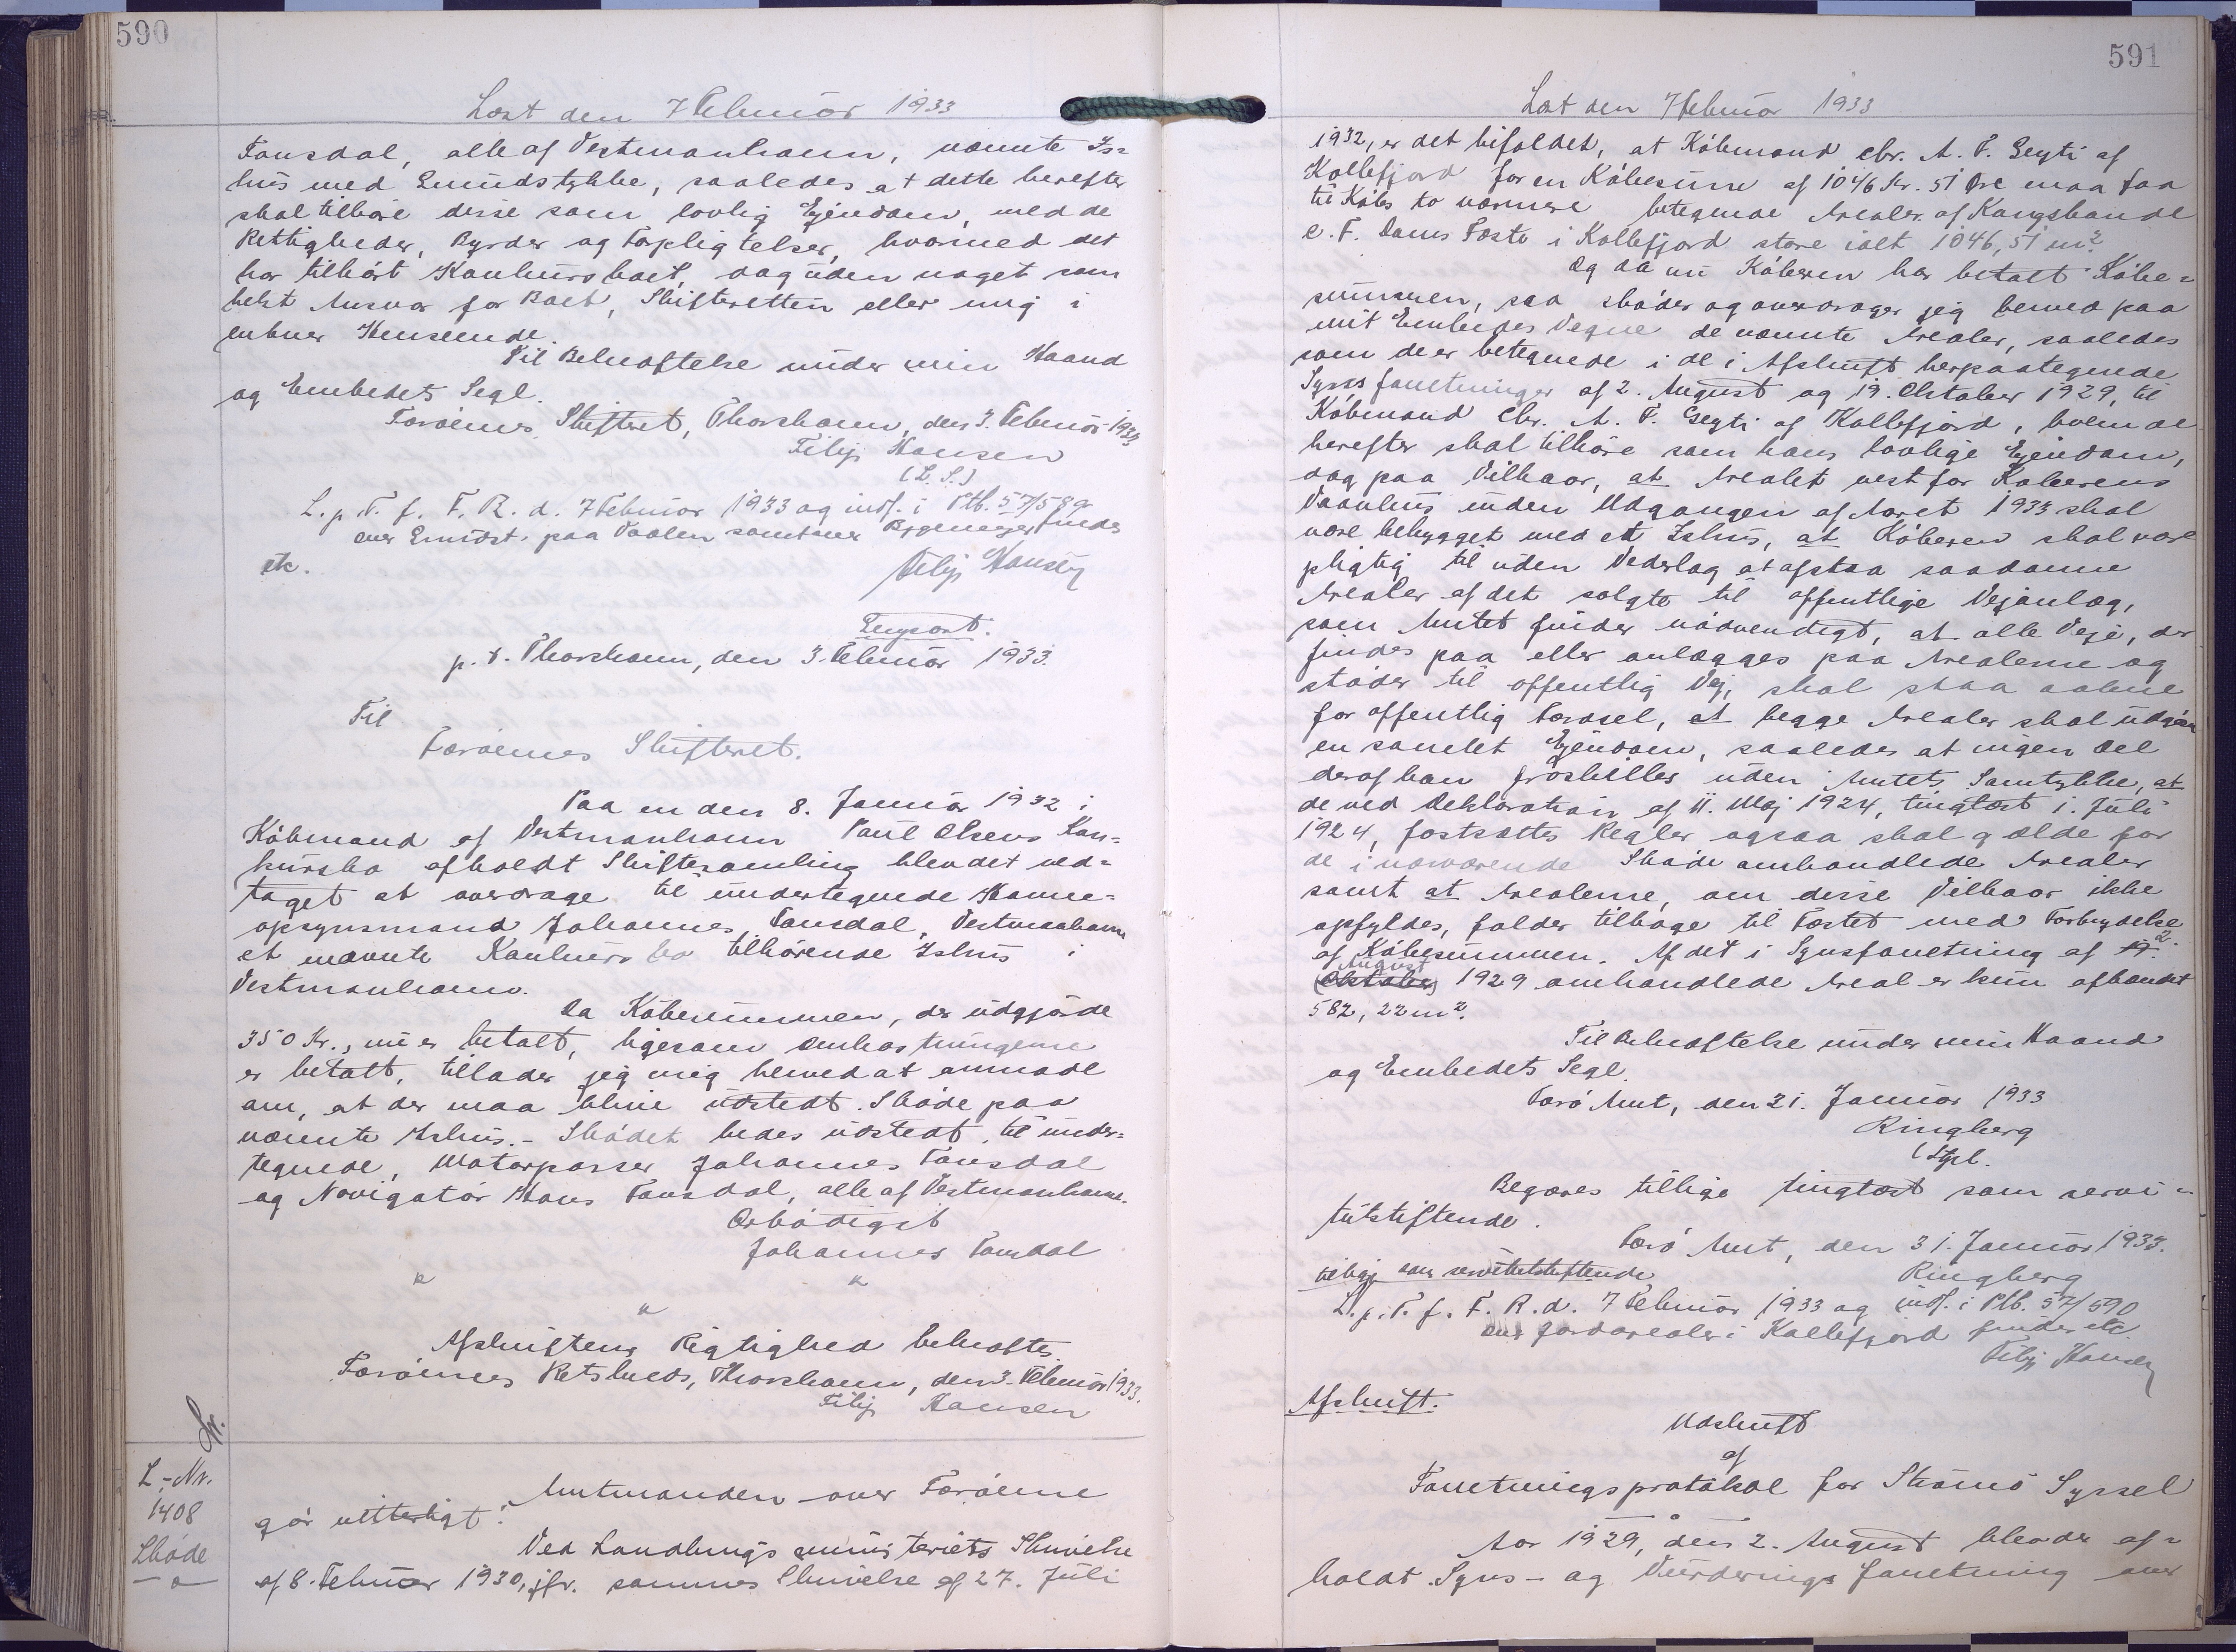 590
Læst den 7 Februar 1933
Fonsdal, alle af Vestmanhavn, nævnte Is=
hus med Grundstykke, saaledes at dette herefter
skal tilhøre disse som lovlig Ejendom, med de
Rettigheder, Byrder og Forpligtelser, hvormed det
har tilhørt Konkursboet, dog uden noget som
helst Ansvar for Boet, Skifteretten eller mig i
enhver Henseende.
Til Bekræftelse under min Haand
og Embedets Segl.
Færøernes Skifteret, Thorshavn, den 3. Februar 1933
Filip Hansen
(L.S.)
L. p. T. f. F. R. d. 7 Februar 1933 og indf. i Ptb. 57/589
over Grundst. paa samt over Bygninger findes
etc.
Filip Hansen
Genpart.
p. t. Thorshavn, den 3. Februar 1933.
Til
Færøernes Skifteret.
Paa en den 8. Januar 1932 i
Købmand af Vestmanhavn Paul Olsens Kon=
kursbo afholdt Skiftesamling blev det ved=
taget at overdrage til undertegnede Havne=
opsynsmand Johannes Fonsdal, Vestmanhavn
et nævnte Konkursbo tilhørende Ishus i
Vestmanhavn.
Da Købesummen, der udgjorde
350 Kr., nu er betalt, ligesom Omkostningerne
er betalt, tillader jeg mig herved at anmode
om, at der maa blive udstedt Skøde paa
nævnte Ishus. - Skødet bedes udstedt til under=
tegnede, Motorpasser Johannes Fonsdal
og Navigatør Hans Fonsdal, alle af Vestmanhavn.
Ærbødigst
Johannes Fonsdal
Afskriftens Rigtighed bekræftes
Færøernes Retskreds, Thorshavn, den 3. Februar 1933.
Filip Hansen
L.-Nr.
1408
Skøde
Amtmanden over Færøerne
gør vitterligt:
Ved Landbrugsministeriets Skrivelse
af 8. Februar 1930, jfr. sammes Skrivelse af 27. Juli
591
Læst den 7 Februar 1933
1932, er det bifaldet, at Købmand Chr. A. F. Geyti af
Kollefjord for en Købesum af 1046 Kr. 51 Øre maa faa
til Købs to nærmere betegnede Arealer af Kongsbonde
E. F. Dams Fæste i Kollefjord store ialt 1046,51 m².
Og da nu Køberen har betalt Købe=
summen, saa skøder og overdrager jeg herved paa
mit Embedes Vegne de nævnte Arealer, saaledes
som de er betegnede i de i Afskrift herpaategnede
Synsforretninger af 2. August og 19. Oktober 1929, til
Købmand Chr. A. F. Geyti af Kollefjord, hvem de
herefter skal tilhøre som hans lovlige Ejendom,
dog paa Vilkaar, at Arealet vest for Køberens
Vaanhus inden Udgangen af Aaret 1933 skal
være bebygget med et Ishus, at Køberen skal være
pligtig til uden Vederlag at afstaa saadanne
Arealer af det solgte til offentlige Vejanlæg,
som Amtet finder nødvendigt, at alle Veje, der
findes paa eller anlægges paa Arealerne og
støder til offentlig Vej, skal staa aabne
for offentlig Færdsel, at begge Arealer skal udgøre
en samlet Ejendom, saaledes at ingen Del
deraf kan fraskilles uden Amtets Samtykke, at
de ved Deklaration af 11. Maj 1924, tinglæst 1. Juli
1924, fastsatte Regler ogsaa skal gælde for
de i nærværende Skøde omhandlede Arealer
samt at Arealerne, om disse Vilkaar ikke
opfyldes, falder tilbage til Fæstet med Forbrydelse
af Købesummen. Af det i Synsforretning af 19. 2.
(Oktober) August 1929 omhandlede Areal er kun afhændet
582,22 m².
Til Bekræftelse under min Haand
og Embedets Segl.
Færø Amt, den 21. Januar 1933
Ringberg
(Segl.
Begæres tillige tinglæst som servi=
tutstiftende.
Færø Amt, den 31. Januar 1933.
Ringberg
tillige som servitutstiftende
L. p. T. f. F. R. d. 7 Februar 1933 og indf. i Ptb. 57/590
over Jordarealer i Kollefjord findes etc.
Filip Hansen
Afskrift.
Udskrift
af
Forretningsprotokol for Strømø Syssel
Aar 1929, den 2. August blev der af=
holdt Syns- og Vurderingsforretning over